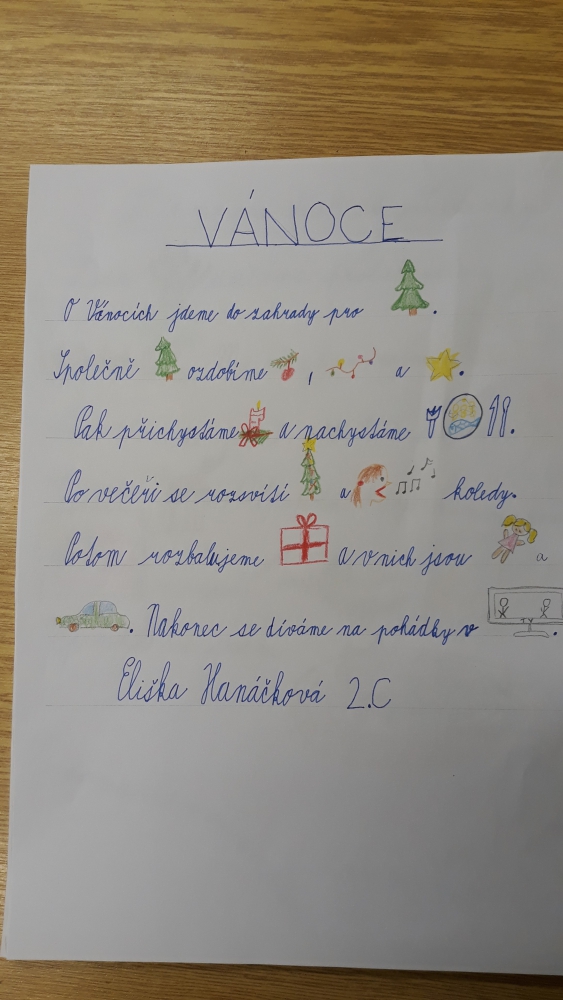 VÁNOCE
O Vánocích jdeme do zahrady pro .
Společně ozdobíme , a .
Pak přichystáme a nachystáme .
Po večeři se rozsvítí a koledy.
Potom rozbalujeme a v nich jsou a
. Nakonec se díváme na pohádky v .
TV
Eliška Hanáčková 2.C